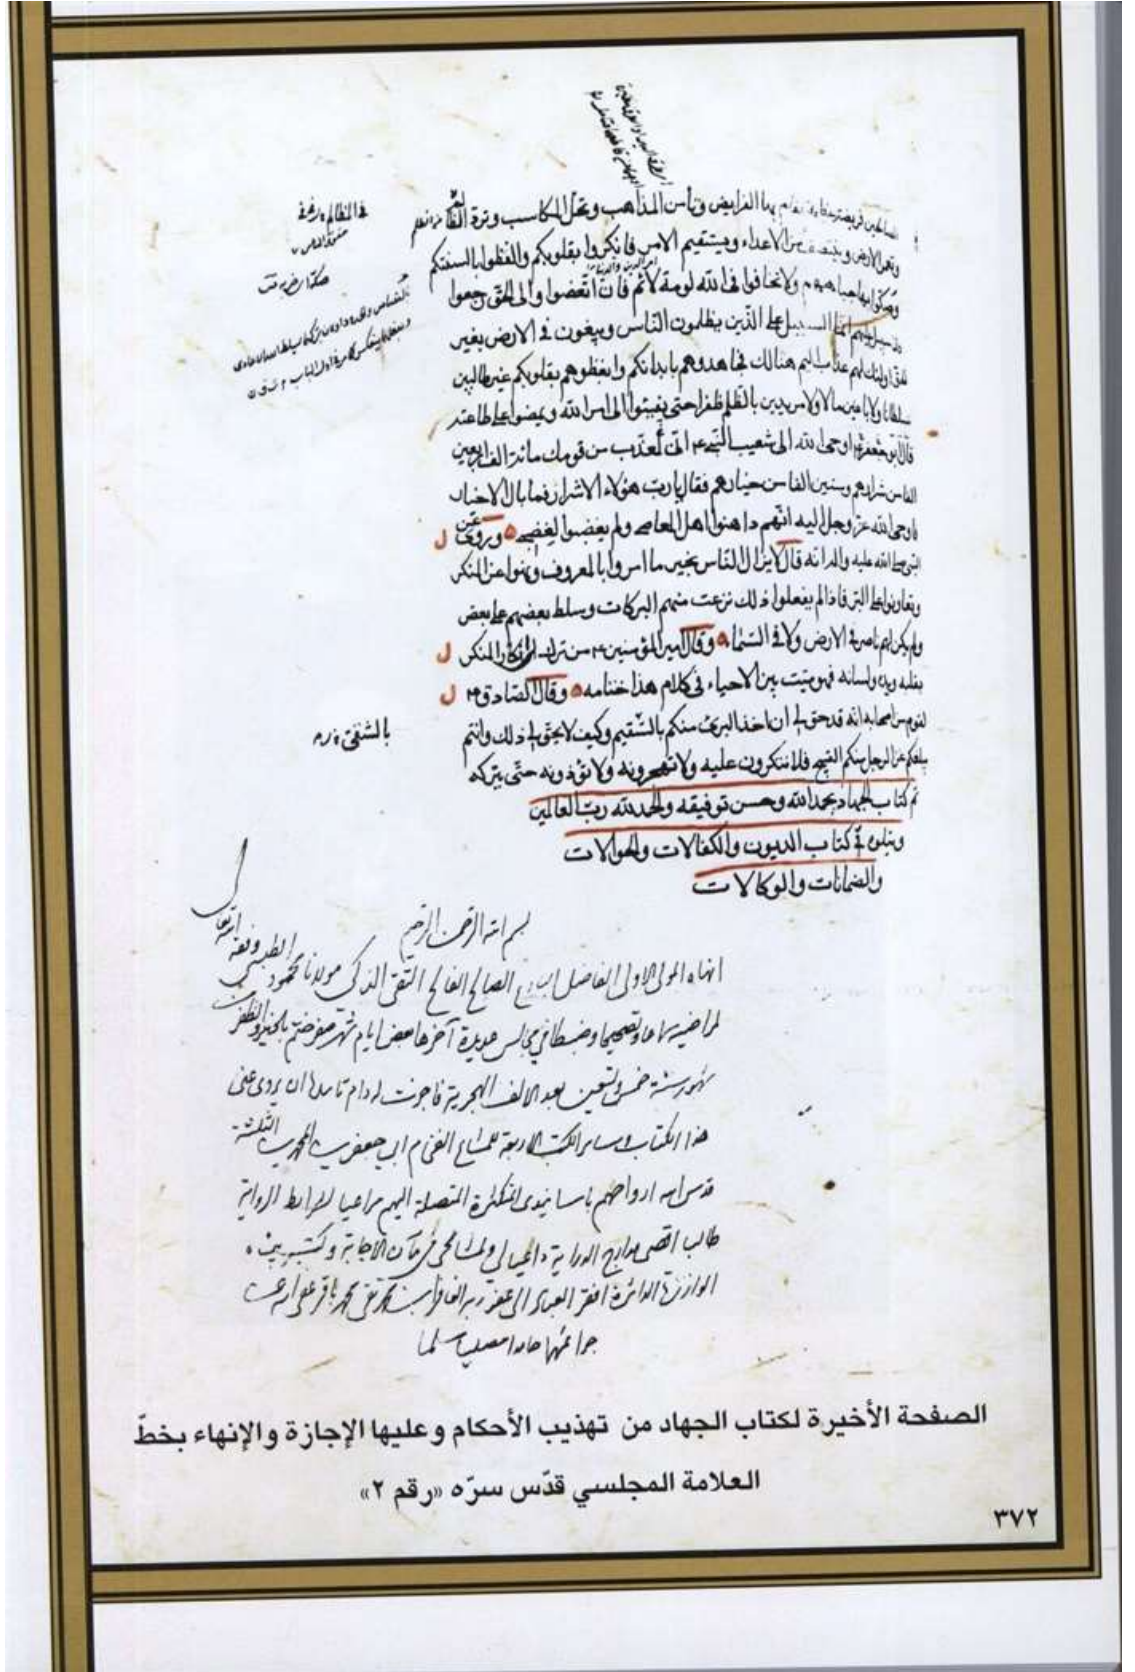 الصالحين فريضة بها تقام الفرايض وتأمن المذاهب وتحل المكاسب وترد المظالم
وتعمر الارض وينتصف من الاعداء ويستقيم الامر فانكروا بقلوبكم والفظوا بالسنتكم
وصكوا بها جباههم ولا تخافوا فى الله لومة لائم فان اتعضوا والى الحق رجعوا
فلا سبيل عليهم انما السبيل على الذين يظلمون الناس ويبغون فى الارض بغير
الحق اولئك لهم عذاب اليم هنالك فجاهدوهم بابدانكم وابغظوهم بقلوبكم غير طالبين
سلطانا ولا باغين مالا ولا مريدين بالظلم ظفرا حتى يفيئوا الى امر الله ويمضوا على طاعته
قال ابو جعفر ع اوحى الله الى شعيب النبى ع انى لمعذب من قومك مائة الف اربعين
الفا من شرارهم وستين الفا من خيارهم فقال يا رب هؤلاء الاشرار فما بال الاخيار
فاوحى الله عز وجل اليه انهم داهنوا اهل المعاصى ولم يغضبوا لغضبى وروى عن
النبى صلى الله عليه واله انه قال لا يزال الناس بخير ما امروا بالمعروف ونهوا عن المنكر
وتعاونوا على البر فاذا لم يفعلوا ذلك نزعت منهم البركات وسلط بعضهم على بعض
ولم يكن لهم ناصر فى الارض ولا فى السماء وقال امير المؤمنين ع من ترك انكار المنكر
بقلبه ويده ولسانه فهو ميت بين الاحياء فى كلام هذا ختامه وقال الصادق ع
لقوم من اصحابه انه قد حق لى ان اخذ البرئ منكم بالسقيم وكيف لا يحق لى ذلك وانتم
يبلغكم عن الرجل منكم القبيح فلا تنكرون عليه ولا تهجرونه ولا تؤذونه حتى يتركه
تم كتاب الجهاد بحمد الله وحسن توفيقه والحمد لله رب العالمين
ويتلوه فى كتاب الديون والكفالات والحوالات
والضمانات والوكالات
بسم الله الرحمن الرحيم
انهاه المولى الاولى الفاضل البارع الصالح الفالح التقى الذكى مولانا محمود الطبسى وفقه الله تعالى
لمراضيه سماعا وتصحيحا وضبطا فى مجالس عديدة آخرها بعض ايام شهر صفر ختم بالخير والظفر من
شهور سنة خمس وتسعين بعد الالف الهجرية فاجزت له دام تاييده ان يروى عنى
هذا الكتاب وساير الكتب الاربعة للمشايخ العظام ابى جعفرين المحمدين الثلثة
قدس الله ارواحهم باسانيدى المتكثرة المتصلة اليهم مراعيا لشرايط الرواية
طالبا اقصى مدارج الدراية داعيا لى ولمشايخى فى مآن الاجابة وكتب بيمناه
الوازرة الداثرة افقر العباد الى عفو ربه الغافر ابن محمد تقى محمد باقر عفى الله عن
جرائمهما حامدا مصليا مسلما
الصفحة الأخيرة لكتاب الجهاد من تهذيب الأحكام وعليها الإجازة والإنهاء بخطّ
العلامة المجلسي قدّس سرّه «رقم ٢»
٣٧٢